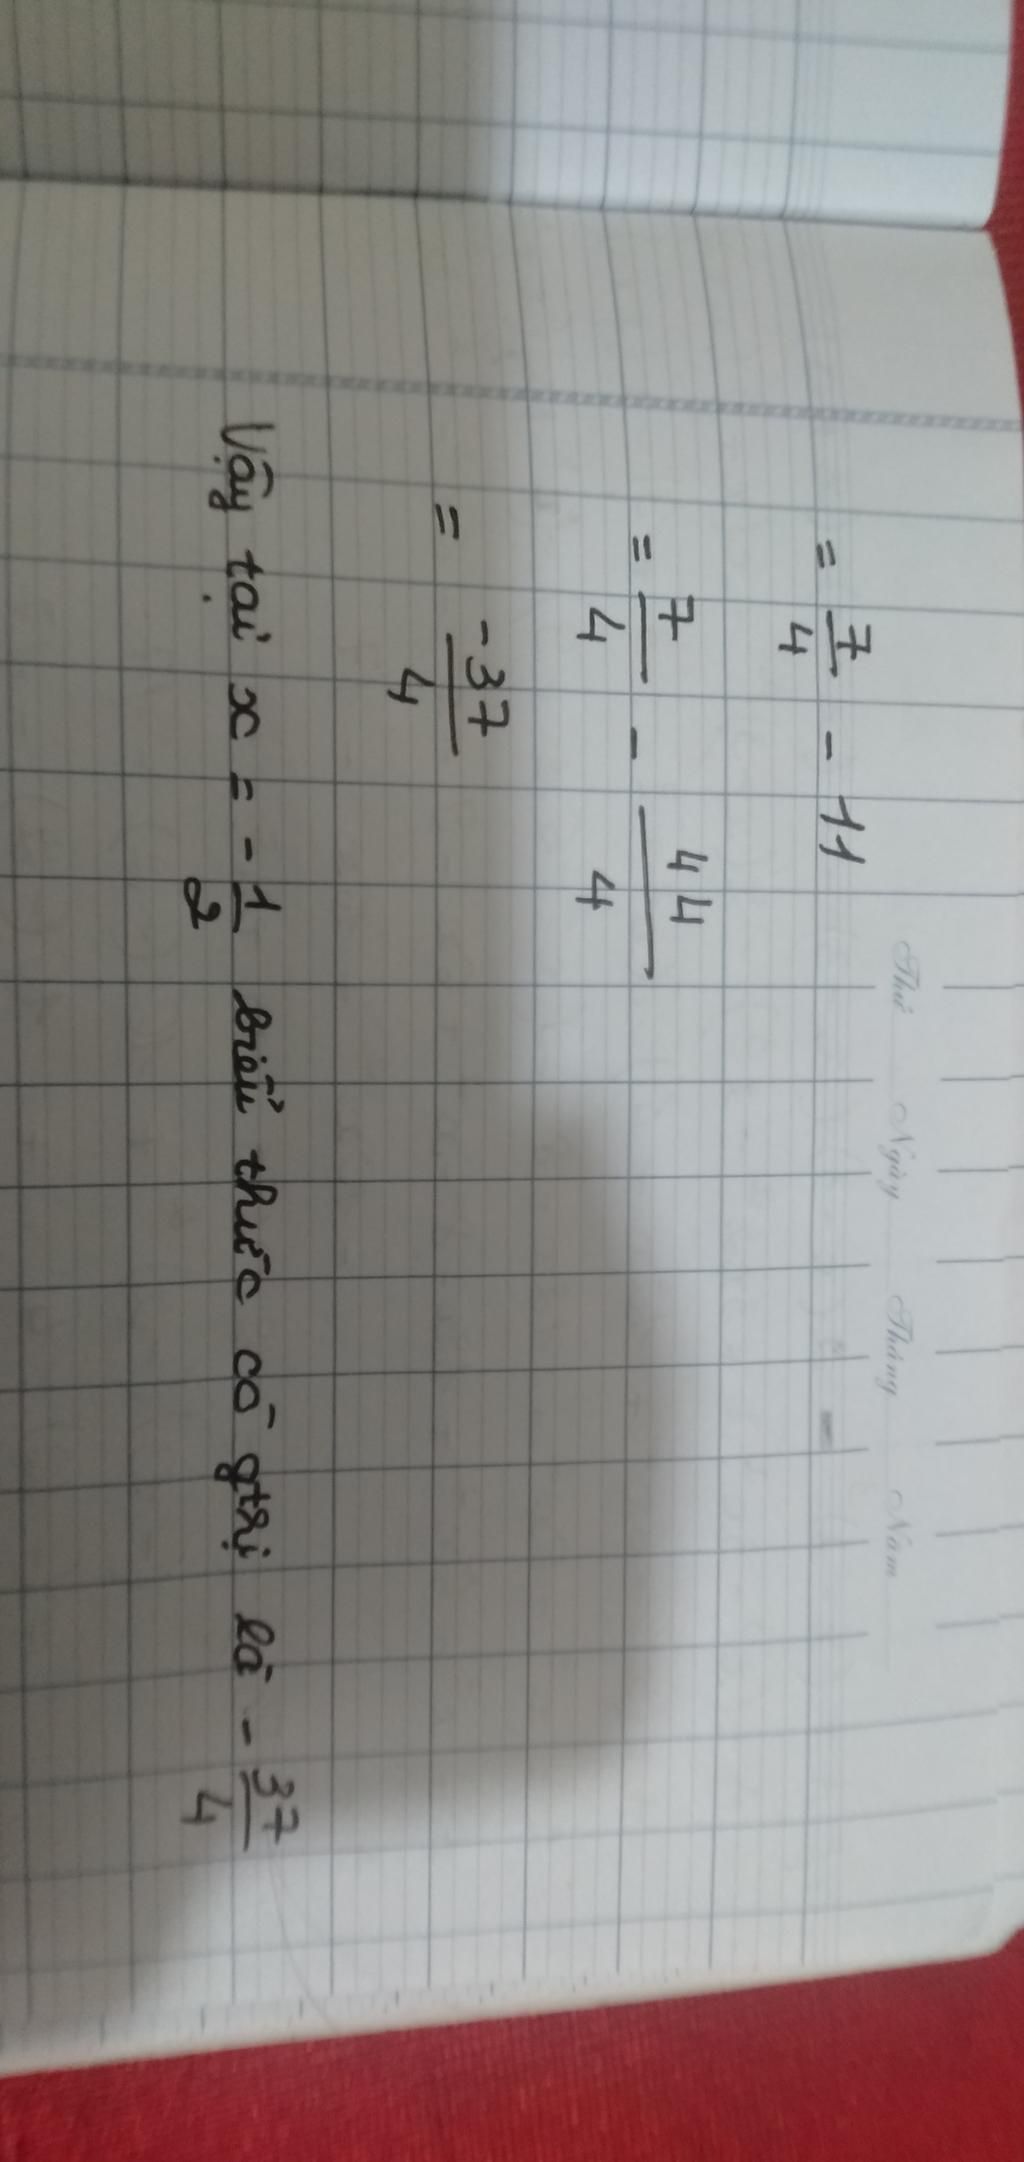 Thứ Ngày Tháng Năm
= 7/4 - 11
= 7/4 - 44/4
= -37/4
Vậy tại x = -1/2 biểu thức có gtrị là -37/4